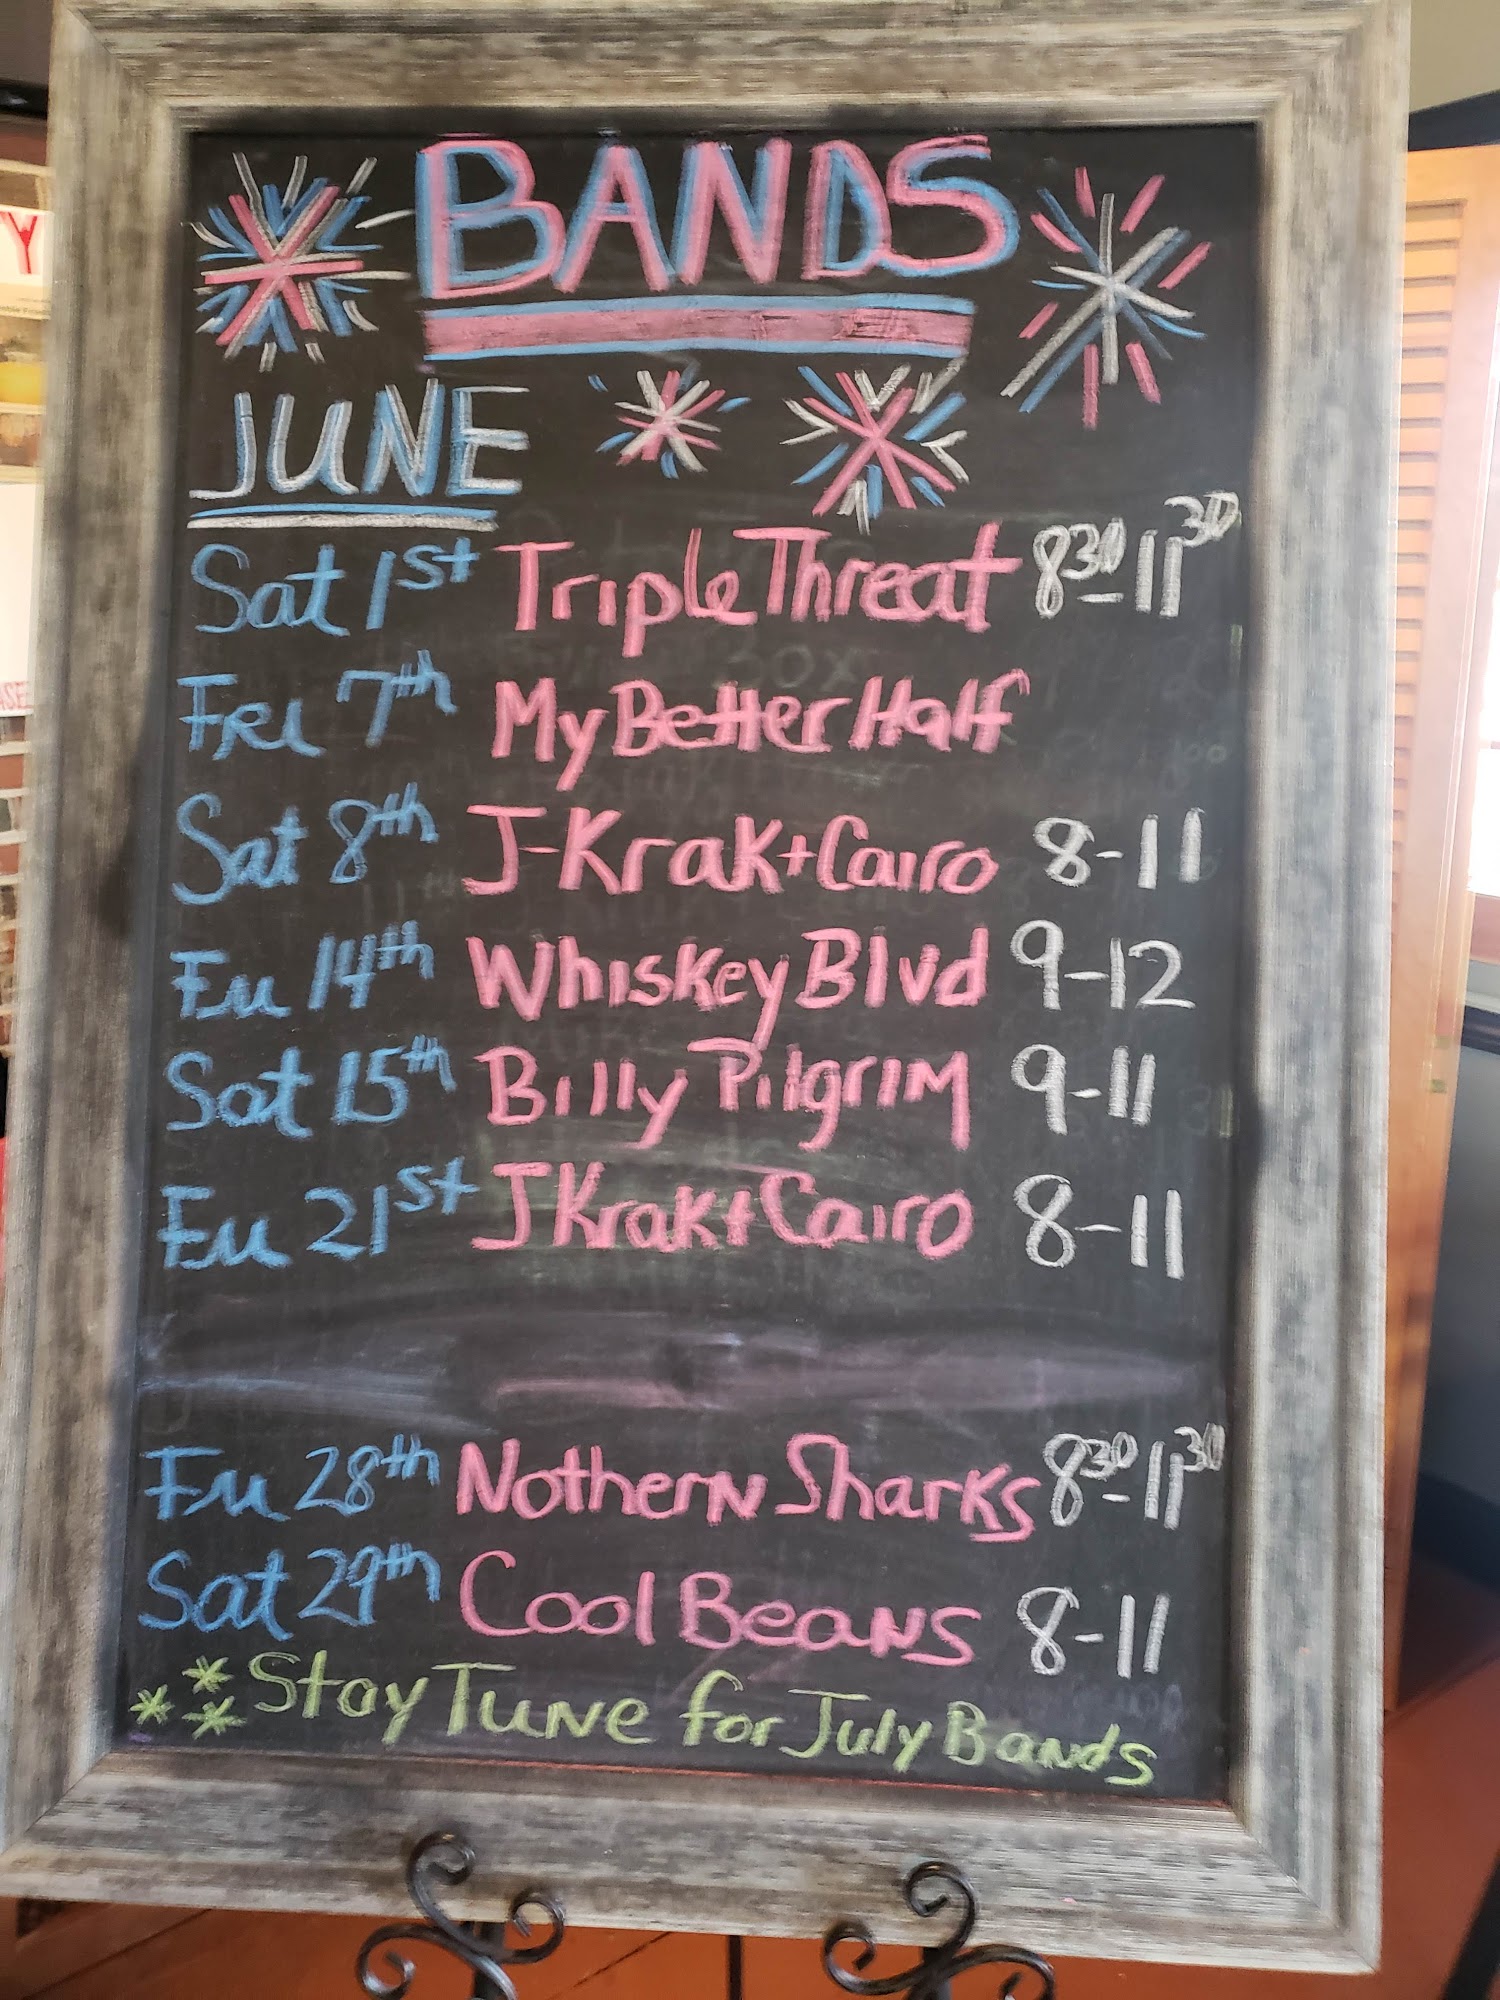 BANDS
JUNE
Sat 1st Triple Threat 8:30-11:30
Fri 7th My Better Half
Sat 8th J-Krak + Cairo 8-11
Fri 14th Whiskey Blvd 9-12
Sat 15th Billy Pilgrim 9-11
Fri 21st J Krak + Cairo 8-11
Fri 28th Nothern Sharks 8:30-11:30
Sat 29th Cool Beans 8-11
*** Stay Tune for July Bands
Y